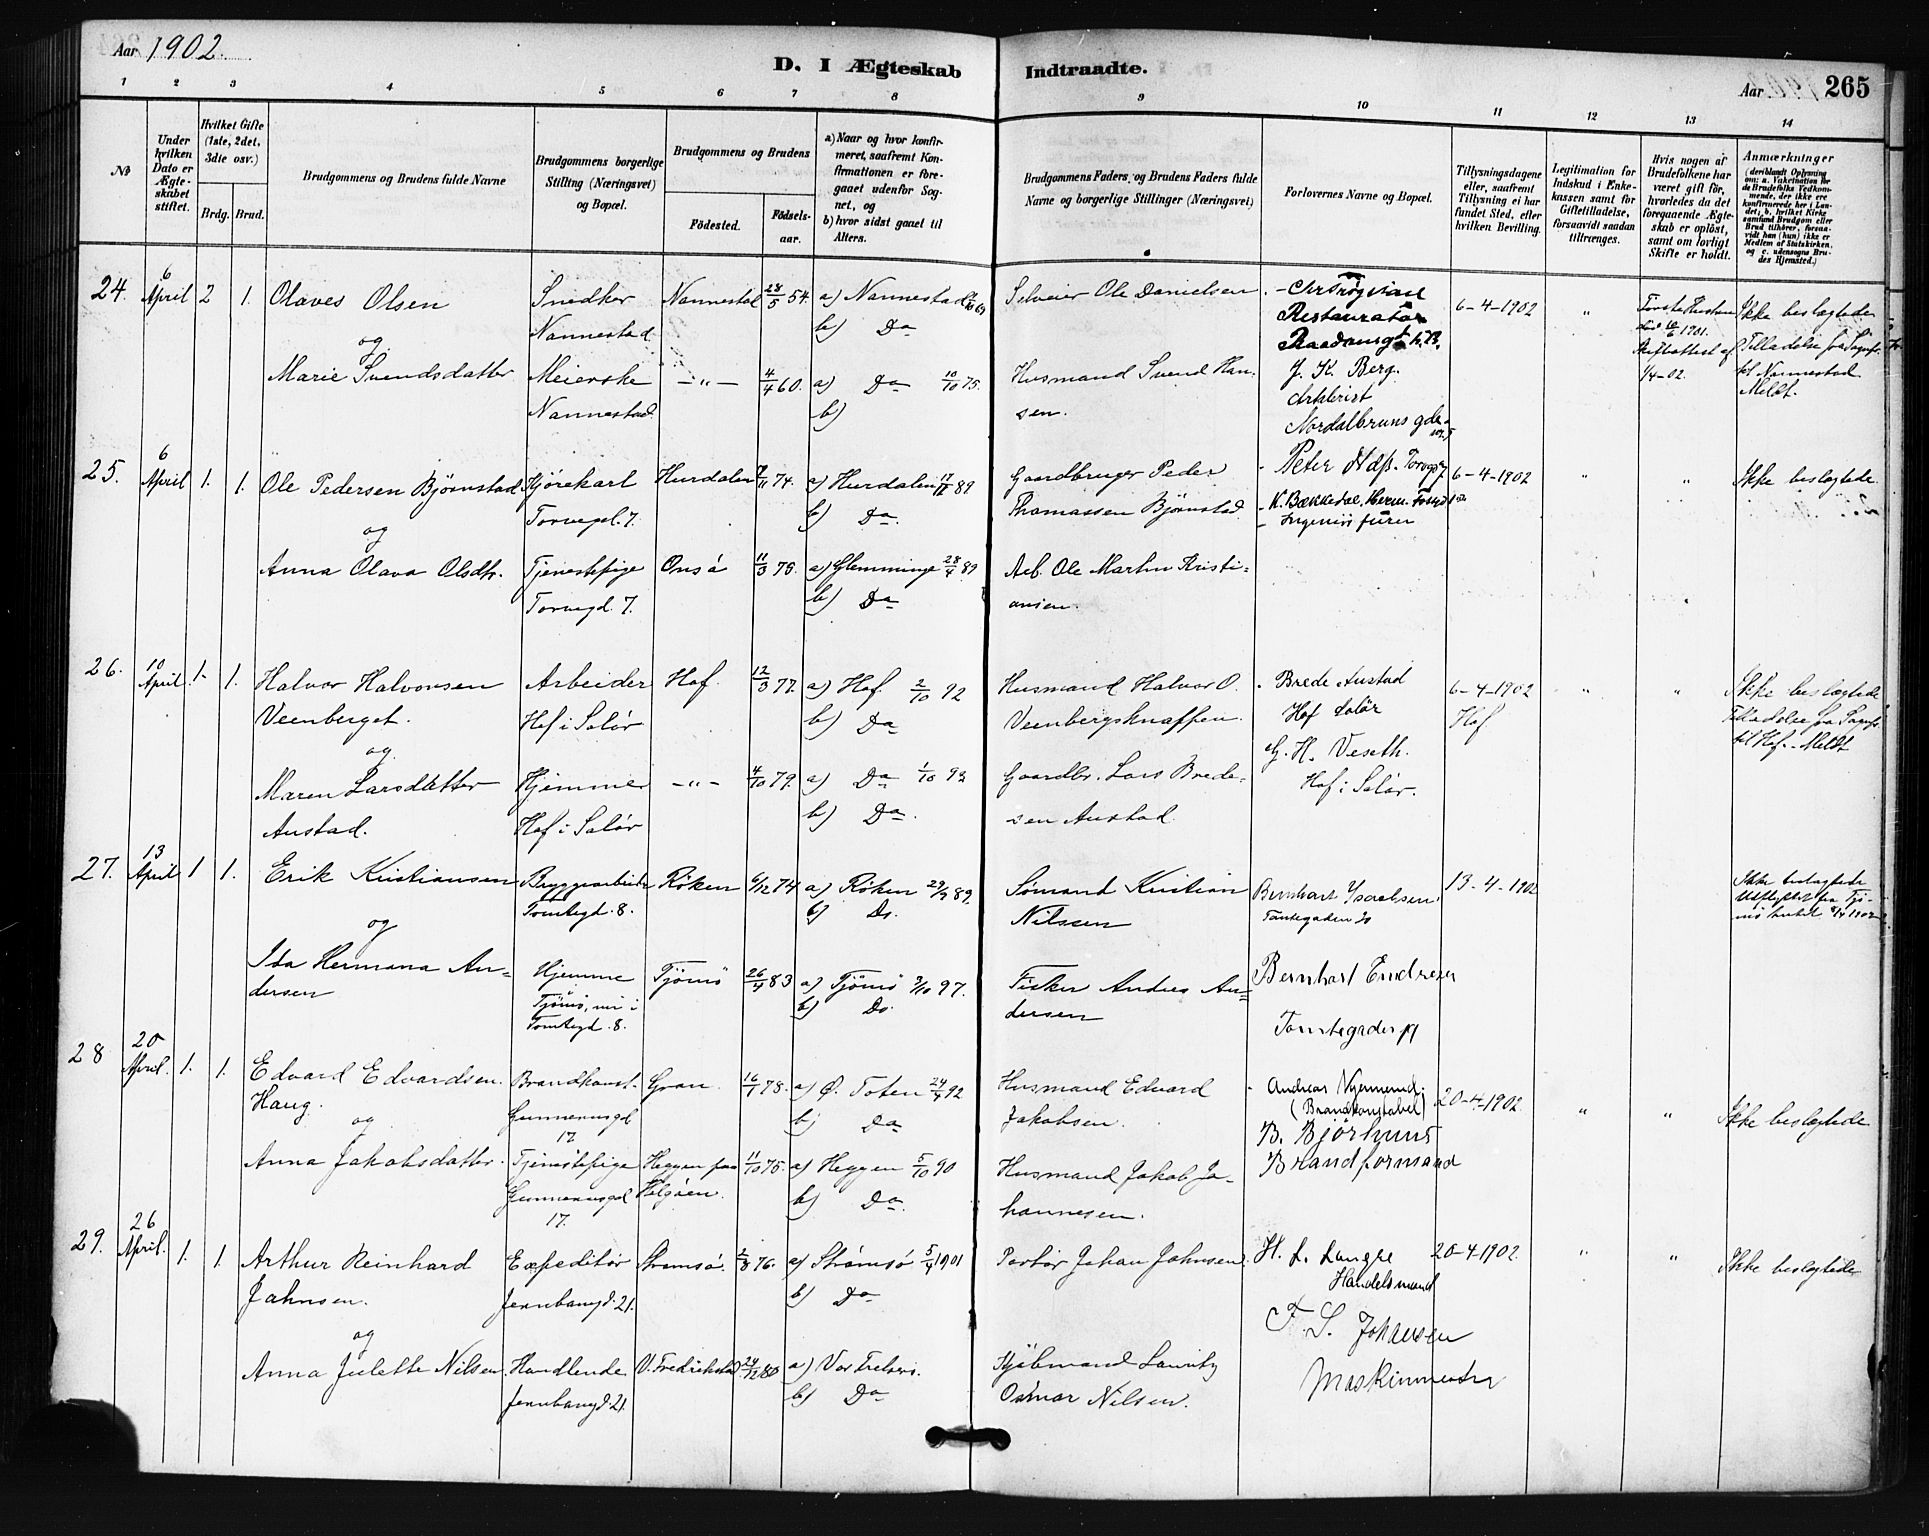 Aar 1902.
D. I Ægteskab Indtraadte.
Aar 265
1 2 3 4 5 6 7 8 9 10 11 12 13 14
No
Under hvilken Dato er Ægteskabet stiftet.
Hvilket Gifte (1ste, 2det, 3die osv.)
Brdg. Brud.
Brudgommens og Brudens fulde Navne
Brudgommens borgerlige Stilling (Næringsvei) og Bopæl.
Brudgommens og Brudens
Fødested. Fødselsaar.
a) Naar og hvor konfirmeret, saafremt Konfirmationen er foregaaet udenfor Sognet, og
b) hvor sidst gaaet til Alters.
Brudgommens Faders, og Brudens Faders fulde Navne og borgerlige Stillinger (Næringsvei)
Forlovernes Navne og Bopæl.
Tillysningsdagene eller, saafremt Tillysning ei har fundet Sted, efter hvilken Bevilling.
Legitimation for Indskud i Enkekassen samt for Giftetilladelse, forsaavidt saadan tiltrænges.
Hvis nogen af Brudefolkene har været gift før, hvorledes da det foregaaende Ægteskab er opløst, samt om lovligt Skifte er holdt.
Anmærkninger (deriblandt Oplysning om: a. Vakcination for de Brudefolks Vedkommende, der ikke ere konfirmerede her i Landet; b. hvilket Kirkesamfund Brudgom eller Brud tilhører, forsaavidt han (hun) ikke er Medlem af Statskirken, og c. udensogns Brudes Hjemsted.)
24. 6 April 2 1. Olaves Olsen
Snedker Nannestad
Nannestad 28/5 54.
a) Nannestad
b) Do
Selveier Ole Danielsen
Restauratør
6-4-1902 "
Ikke beslægtede
og
Marie Svendsdatter
Meierske Nannestad
-"- 4/4 60.
a) Do 10/10 75.
b)
Husmand Svend Hansen.
J. K. Berg.
Nordalbruns gde
til Nannestad
Meldt.
25. 6 April 1. 1. Ole Pedersen Bjørnstad
Kjørekarl
Torvegd. 7.
Hurdalen 74.
a) Hurdalen 89
b) Do.
Gaardbruger Peder Thomassen Bjørnstad
6-4-1902 " "
Ikke beslægtede
og
Anna Olava Olsdtr.
Tjenestepige
Torvegd. 7.
Onsø 11/3 75.
a) Glemminge 28/4 89
b) Do
Arb. Ole Martin Kristiansen.
26. 10 April 1. 1. Halvor Halvorsen Veenberget.
Arbeider
Hof i Solør
Hof. 12/3 77.
a) Hof. 2/10 92
b) Do
Husmand Halvor O. Veenbergsknappen.
Brede Austad
Hof Solør
6-4-1902 Hof " "
Ikke beslægtede
til Hof. Meldt
og
Maren Larsdatter Austad.
Hjemme
Hof i Solør
-"- 4/10 79.
a) Do 1/10 93
b) Do.
Gaardbr. Lars Bredesen Austad
G. H. Veseth.
Hof i Solør.
27. 13 April 1 1. Erik Kristiansen
Bryggearbeider
Tomtegd. 8.
Røken 6/12 74
a) Røken 89.
b) Do.
Sømand Kristian Nilsen
Bernhart Isachsen
Tomtegaden 20
13-4-1902
Ikke beslægtede
og
Ida Hermana Andersen
Hjemme
Tjømø, nu i Tomtegd. 8.
Tjømø 26/4 83
a) Tjømø 97.
b) Do.
Fisker Andres Andersen
Bernhart Endresen
Tomtegaden 19
28 20 April. 1. 1. Edvard Edvardsen Haug.
Brandkonst.
Gunnerusgd 17
Gran. 16/1 78.
a) Ø. Toten 92
b) Do
Husmand Edvard Jakobsen.
Andreas
(Brandkonstabel)
20-4-1902. " "
Ikke beslægtede
og
Anna Jakobsdatter.
Tjenestepige
Gunnerusgd 17.
Heggen paa Helgøen. 11/10 75.
a) Heggen 5/10 90
b) Do.
Husmand Jakob Johannesen.
Brandformand
29. 26 April. 1. 1. Arthur Reinhard Jahnsen.
Expeditør
Jernbanegd. 21.
Strømsø. 76.
a) Strømsø 5/4 1901
b) Do
Portør Johan Jahnsen
H. L. Langse
Handelsmand
20-4-1902. " "
Ikke beslægtede
og
Anna Julette Nilsen
Handlende
Jernbanegd. 21.
V. Fredrikstad 80
a) Vor Frelsers.
b) Do
Kjøbmand Lauritz Osmar Nilsen.
F. S. Johansen
Maskinmester